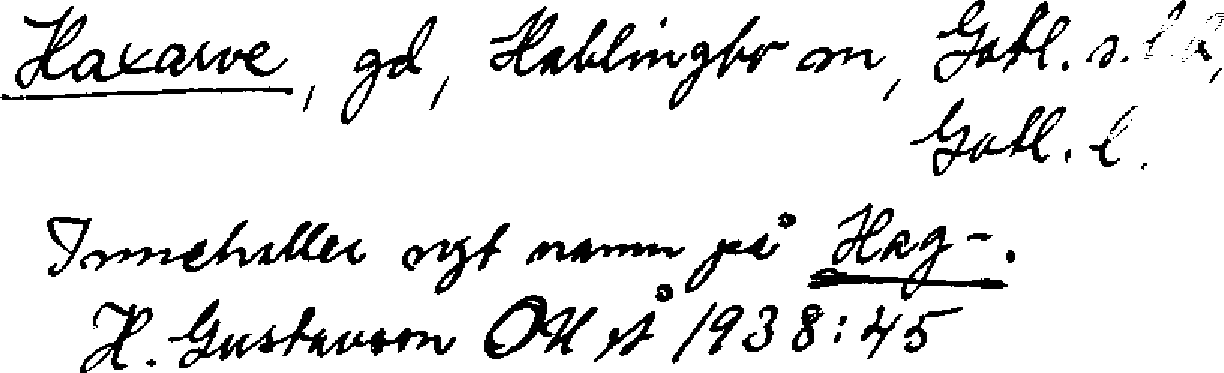 Haxarve, gd, Hablingbo sn, Gotl. s. hd,
Gotl. l.
Innehåller ngt namn på Hag-.
H. Gustavson OUÅ 1938:45